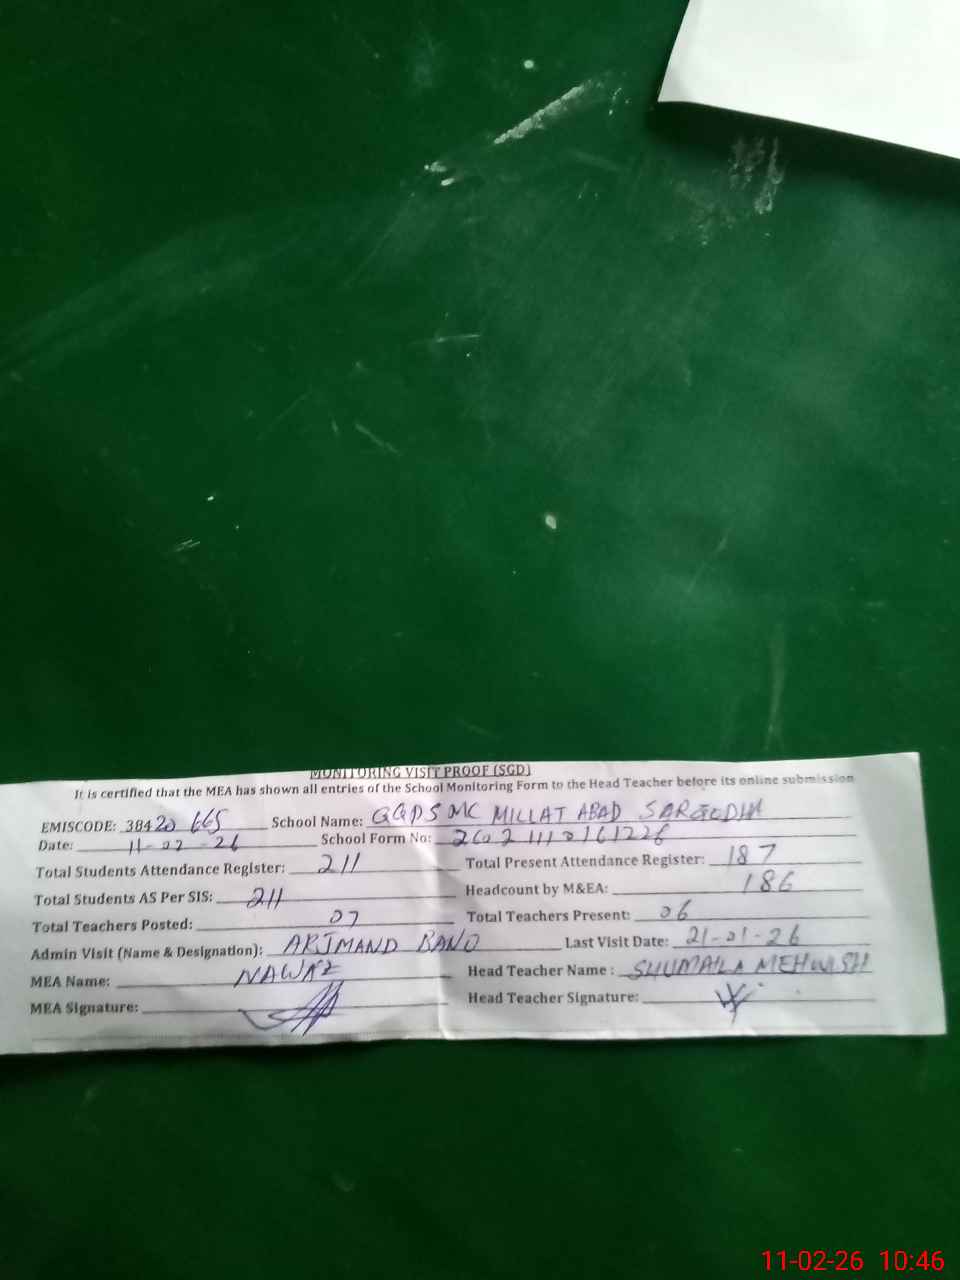 MONITORING VISIT PROOF (SGD)
It is certified that the MEA has shown all entries of the School Monitoring Form to the Head Teacher before its online submission
EMISCODE: 38420 665 School Name: GGPS MC MILLAT ABAD SARGODHA
Date: 11-02-26 School Form No: 26021110161226
Total Students Attendance Register: 211 Total Present Attendance Register: 187
Total Students AS Per SIS: 211 Headcount by M&EA: 186
Total Teachers Posted: 07 Total Teachers Present: 06
Admin Visit (Name & Designation): ARJMAND BANO Last Visit Date: 21-01-26
MEA Name: NAWAZ Head Teacher Name: SHUMAILA MEHWISH
MEA Signature: Head Teacher Signature:
11-02-26 10:46